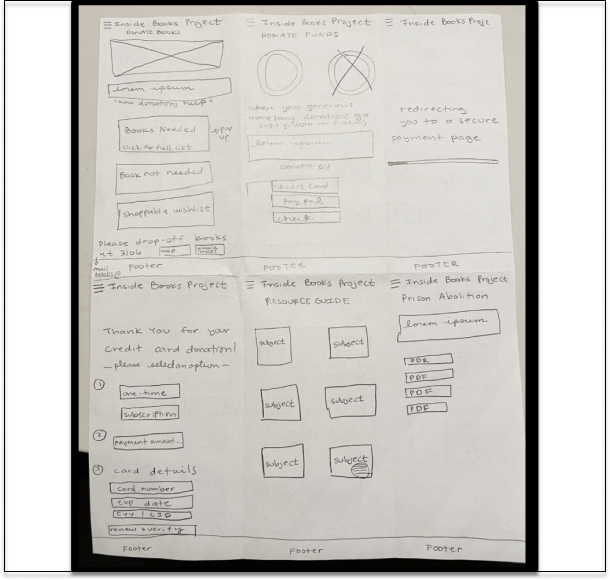 Inside Books Project
DONATE BOOKS
lorem ipsum
"how donations help"
Books Needed
click for full list
pop up
Book not needed
Shoppable wishlist
Please drop-off books
at 3106
map
mail books@
Footer
Inside Books Project
DONATE FUNDS
where your generous
monetary donations go
lorem ipsum
DONATE BY
credit card
Paypal
check
FOOTER
Inside Books Proje
redirecting
you to a secure
payment page
FOOTER
Inside Books Project
Thank You for your
credit card donation!
~please select an option~
1
one-time
subscription
2
payment amount..
3 card details
card number
exp date
review & verify
Footer
Inside Books Project
RESOURCE GUIDE
subject
subject
subject
subject
subject
subject
Footer
Inside Books Project
Prison Abolition
lorem ipsum
PDF
PDF
PDF
PDF
Footer